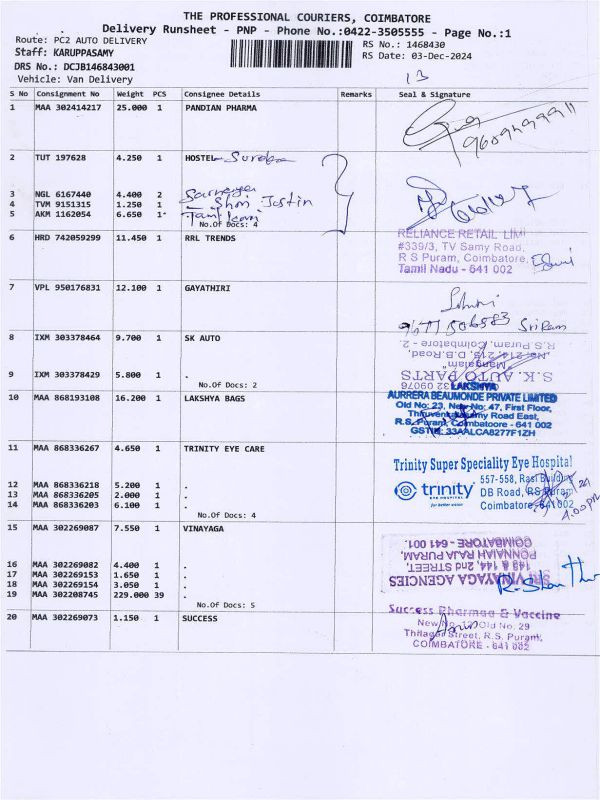 THE PROFESSIONAL COURIERS, COIMBATORE
Delivery Runsheet - PNP - Phone No.:0422-3505555 - Page No.:1
Route: PC2 AUTO DELIVERY
RS No.: 1468430
Staff: KARUPPASAMY
RS Date: 03-Dec-2024
DRS No.: DCJB146843001
Vehicle: Van Delivery
13
S No Consignment No Weight PCS Consignee Details Remarks Seal & Signature
1 MAA 302414217 25.000 1 PANDIAN PHARMA
2 TUT 197628 4.250 1 HOSTEL
3 NGL 6167440 4.400 2
4 TVM 9151315 1.250 1 Shoni Jostin
5 AKM 1162054 6.650 1
No.Of Docs: 4
6 HRD 742059299 11.450 1 RRL TRENDS
RELIANCE RETAIL LIMI
#339/3, TV Samy Road,
R S Puram, Coimbatore,
Tamil Nadu - 641 002
7 VPL 950176831 12.100 1 GAYATHIRI
SriRam
8 IXM 303378464 9.700 1 SK AUTO
9 IXM 303378429 5.800 1 .
No.Of Docs: 2
S.K. AUTO PARTS
"Mangalam"
No. 214, 215, D.B.Road,
R.S. Puram, Coimbatore - 2.
10 MAA 868193108 16.200 1 LAKSHYA BAGS
LAKSHYA
AURRERA BEAUMONDE PRIVATE LIMITED
Old No: 23, New No: 47, First Floor,
Thiruvenkatasamy Road East,
R.S. Puram, Coimbatoore - 641 002
GSTIN: 33AALCA8277F1ZH
11 MAA 868336267 4.650 1 TRINITY EYE CARE
12 MAA 868336218 5.200 1 .
13 MAA 868336205 2.000 1 .
14 MAA 868336203 6.100 1 .
No.Of Docs: 4
Trinity Super Speciality Eye Hospital
557-558, Rasi Building
trinity DB Road, RS Puram
EYE HOSPITAL
for better vision
Coimbatore-641002
4.00 PM
15 MAA 302269087 7.550 1 VINAYAGA
16 MAA 302269082 4.400 1 .
17 MAA 302269153 1.650 1 .
18 MAA 302269154 3.050 1 .
19 MAA 302208745 229.000 39 .
No.Of Docs: 5
SRI VINAYAGA AGENCIES
143 & 144, 2nd STREET,
PONNAIAH RAJA PURAM,
COIMBATORE - 641 001.
20 MAA 302269073 1.150 1 SUCCESS
Success Pharmaa & Vaccine
New No. 12 Old No. 29
Thilagar Street, R.S. Puram,
COIMBATORE - 641 002